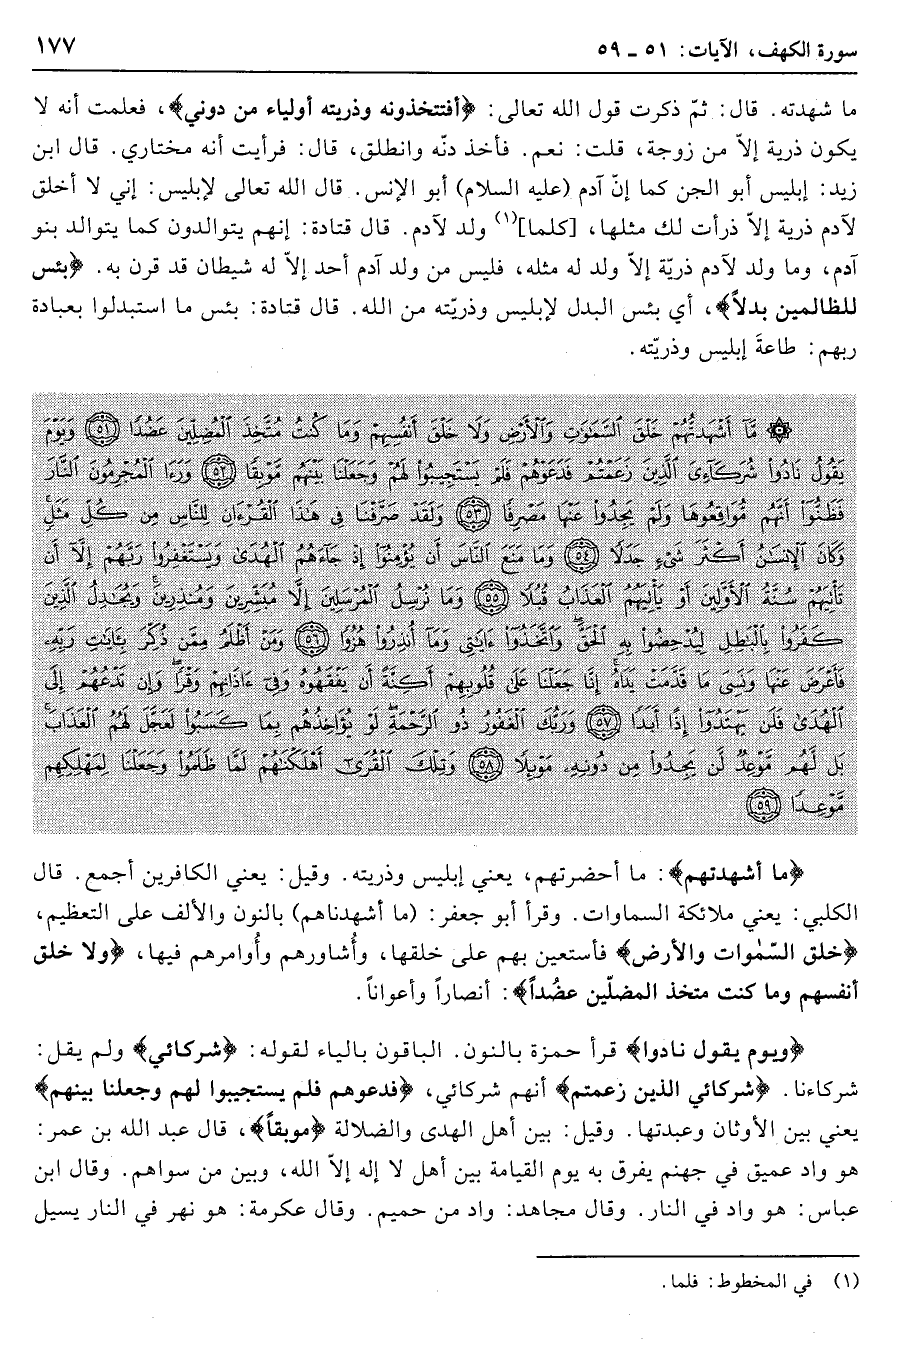 سورة الكهف، الآيات: ٥١ ـ ٥٩
١٧٧
ما شهدته. قال: ثمّ ذكرت قول الله تعالى: ﴿أفتتخذونه وذريته أولياء من دوني﴾، فعلمت أنه لا
يكون ذرية إلاّ من زوجة، قلت: نعم. فأخذ دنّه وانطلق، قال: فرأيت أنه مختاري. قال ابن
زيد: إبليس أبو الجن كما إنّ آدم (عليه السلام) أبو الإنس. قال الله تعالى لإبليس: إني لا أخلق
لآدم ذرية إلاّ ذرأت لك مثلها، [كلما](١) ولد لآدم. قال قتادة: إنهم يتوالدون كما يتوالد بنو
آدم، وما ولد لآدم ذريّة إلاّ ولد له مثله، فليس من ولد آدم أحد إلاّ له شيطان قد قرن به. ﴿بئس
للظالمين بدلاً﴾، أي بئس البدل لإبليس وذريّته من الله. قال قتادة: بئس ما استبدلوا بعبادة
ربهم: طاعةَ إبليس وذريّته.
۞ مَّآ أَشْهَدتُّهُمْ خَلْقَ ٱلسَّمَٰوَٰتِ وَٱلْأَرْضِ وَلَا خَلْقَ أَنفُسِهِمْ وَمَا كُنتُ مُتَّخِذَ ٱلْمُضِلِّينَ عَضُدًا ٥١ وَيَوْمَ
يَقُولُ نَادُوا۟ شُرَكَآءِىَ ٱلَّذِينَ زَعَمْتُمْ فَدَعَوْهُمْ فَلَمْ يَسْتَجِيبُوا۟ لَهُمْ وَجَعَلْنَا بَيْنَهُم مَّوْبِقًا ٥٢ وَرَءَا ٱلْمُجْرِمُونَ ٱلنَّارَ
فَظَنُّوٓا۟ أَنَّهُم مُّوَاقِعُوهَا وَلَمْ يَجِدُوا۟ عَنْهَا مَصْرِفًا ٥٣ وَلَقَدْ صَرَّفْنَا فِى هَٰذَا ٱلْقُرْءَانِ لِلنَّاسِ مِن كُلِّ مَثَلٍ ۚ
وَكَانَ ٱلْإِنسَٰنُ أَكْثَرَ شَىْءٍ جَدَلًا ٥٤ وَمَا مَنَعَ ٱلنَّاسَ أَن يُؤْمِنُوٓا۟ إِذْ جَآءَهُمُ ٱلْهُدَىٰ وَيَسْتَغْفِرُوا۟ رَبَّهُمْ إِلَّآ أَن
تَأْتِيَهُمْ سُنَّةُ ٱلْأَوَّلِينَ أَوْ يَأْتِيَهُمُ ٱلْعَذَابُ قُبُلًا ٥٥ وَمَا نُرْسِلُ ٱلْمُرْسَلِينَ إِلَّا مُبَشِّرِينَ وَمُنذِرِينَ ۚ وَيُجَٰدِلُ ٱلَّذِينَ
كَفَرُوا۟ بِٱلْبَٰطِلِ لِيُدْحِضُوا۟ بِهِ ٱلْحَقَّ ۖ وَٱتَّخَذُوٓا۟ ءَايَٰتِى وَمَآ أُنذِرُوا۟ هُزُوًا ٥٦ وَمَنْ أَظْلَمُ مِمَّن ذُكِّرَ بِـَٔايَٰتِ رَبِّهِۦ
فَأَعْرَضَ عَنْهَا وَنَسِىَ مَا قَدَّمَتْ يَدَاهُ ۚ إِنَّا جَعَلْنَا عَلَىٰ قُلُوبِهِمْ أَكِنَّةً أَن يَفْقَهُوهُ وَفِىٓ ءَاذَانِهِمْ وَقْرًا ۖ وَإِن تَدْعُهُمْ إِلَى
ٱلْهُدَىٰ فَلَن يَهْتَدُوٓا۟ إِذًا أَبَدًا ٥٧ وَرَبُّكَ ٱلْغَفُورُ ذُو ٱلرَّحْمَةِ ۖ لَوْ يُؤَاخِذُهُم بِمَا كَسَبُوا۟ لَعَجَّلَ لَهُمُ ٱلْعَذَابَ ۚ
بَل لَّهُم مَّوْعِدٌ لَّن يَجِدُوا۟ مِن دُونِهِۦ مَوْئِلًا ٥٨ وَتِلْكَ ٱلْقُرَىٰٓ أَهْلَكْنَٰهُمْ لَمَّا ظَلَمُوا۟ وَجَعَلْنَا لِمَهْلِكِهِم
مَّوْعِدًا ٥٩
﴿ما أشهدتهم﴾: ما أحضرتهم، يعني إبليس وذريته. وقيل: يعني الكافرين أجمع. قال
الكلبي: يعني ملائكة السماوات. وقرأ أبو جعفر: (ما أشهدناهم) بالنون والألف على التعظيم،
﴿خلق السّمٰوات والأرض﴾ فأستعين بهم على خلقها، وأُشاورهم وأُوامرهم فيها، ﴿ولا خلق
أنفسهم وما كنت متخذ المضلّين عضُداً﴾: أنصاراً وأعواناً.
﴿ويوم يقول نادوا﴾ قرأ حمزة بالنون. الباقون بالياء لقوله: ﴿شركائي﴾ ولم يقل:
شركاءنا. ﴿شركائي الذين زعمتم﴾ أنهم شركائي، ﴿فدعوهم فلم يستجيبوا لهم وجعلنا بينهم﴾
يعني بين الأوثان وعبدتها. وقيل: بين أهل الهدى والضلالة ﴿موبقاً﴾، قال عبد الله بن عمر:
هو واد عميق في جهنم يفرق به يوم القيامة بين أهل لا إله إلاّ الله، وبين من سواهم. وقال ابن
عباس: هو واد في النار. وقال مجاهد: واد من حميم. وقال عكرمة: هو نهر في النار يسيل
(١) في المخطوط: فلما.